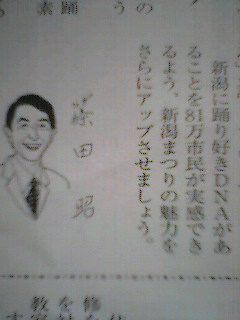 新潟に踊り好きDNAがあ
ることを81万市民が実感でき
るよう、新潟まつりの魅力を
さらにアップさせましょう。
篠田 昭